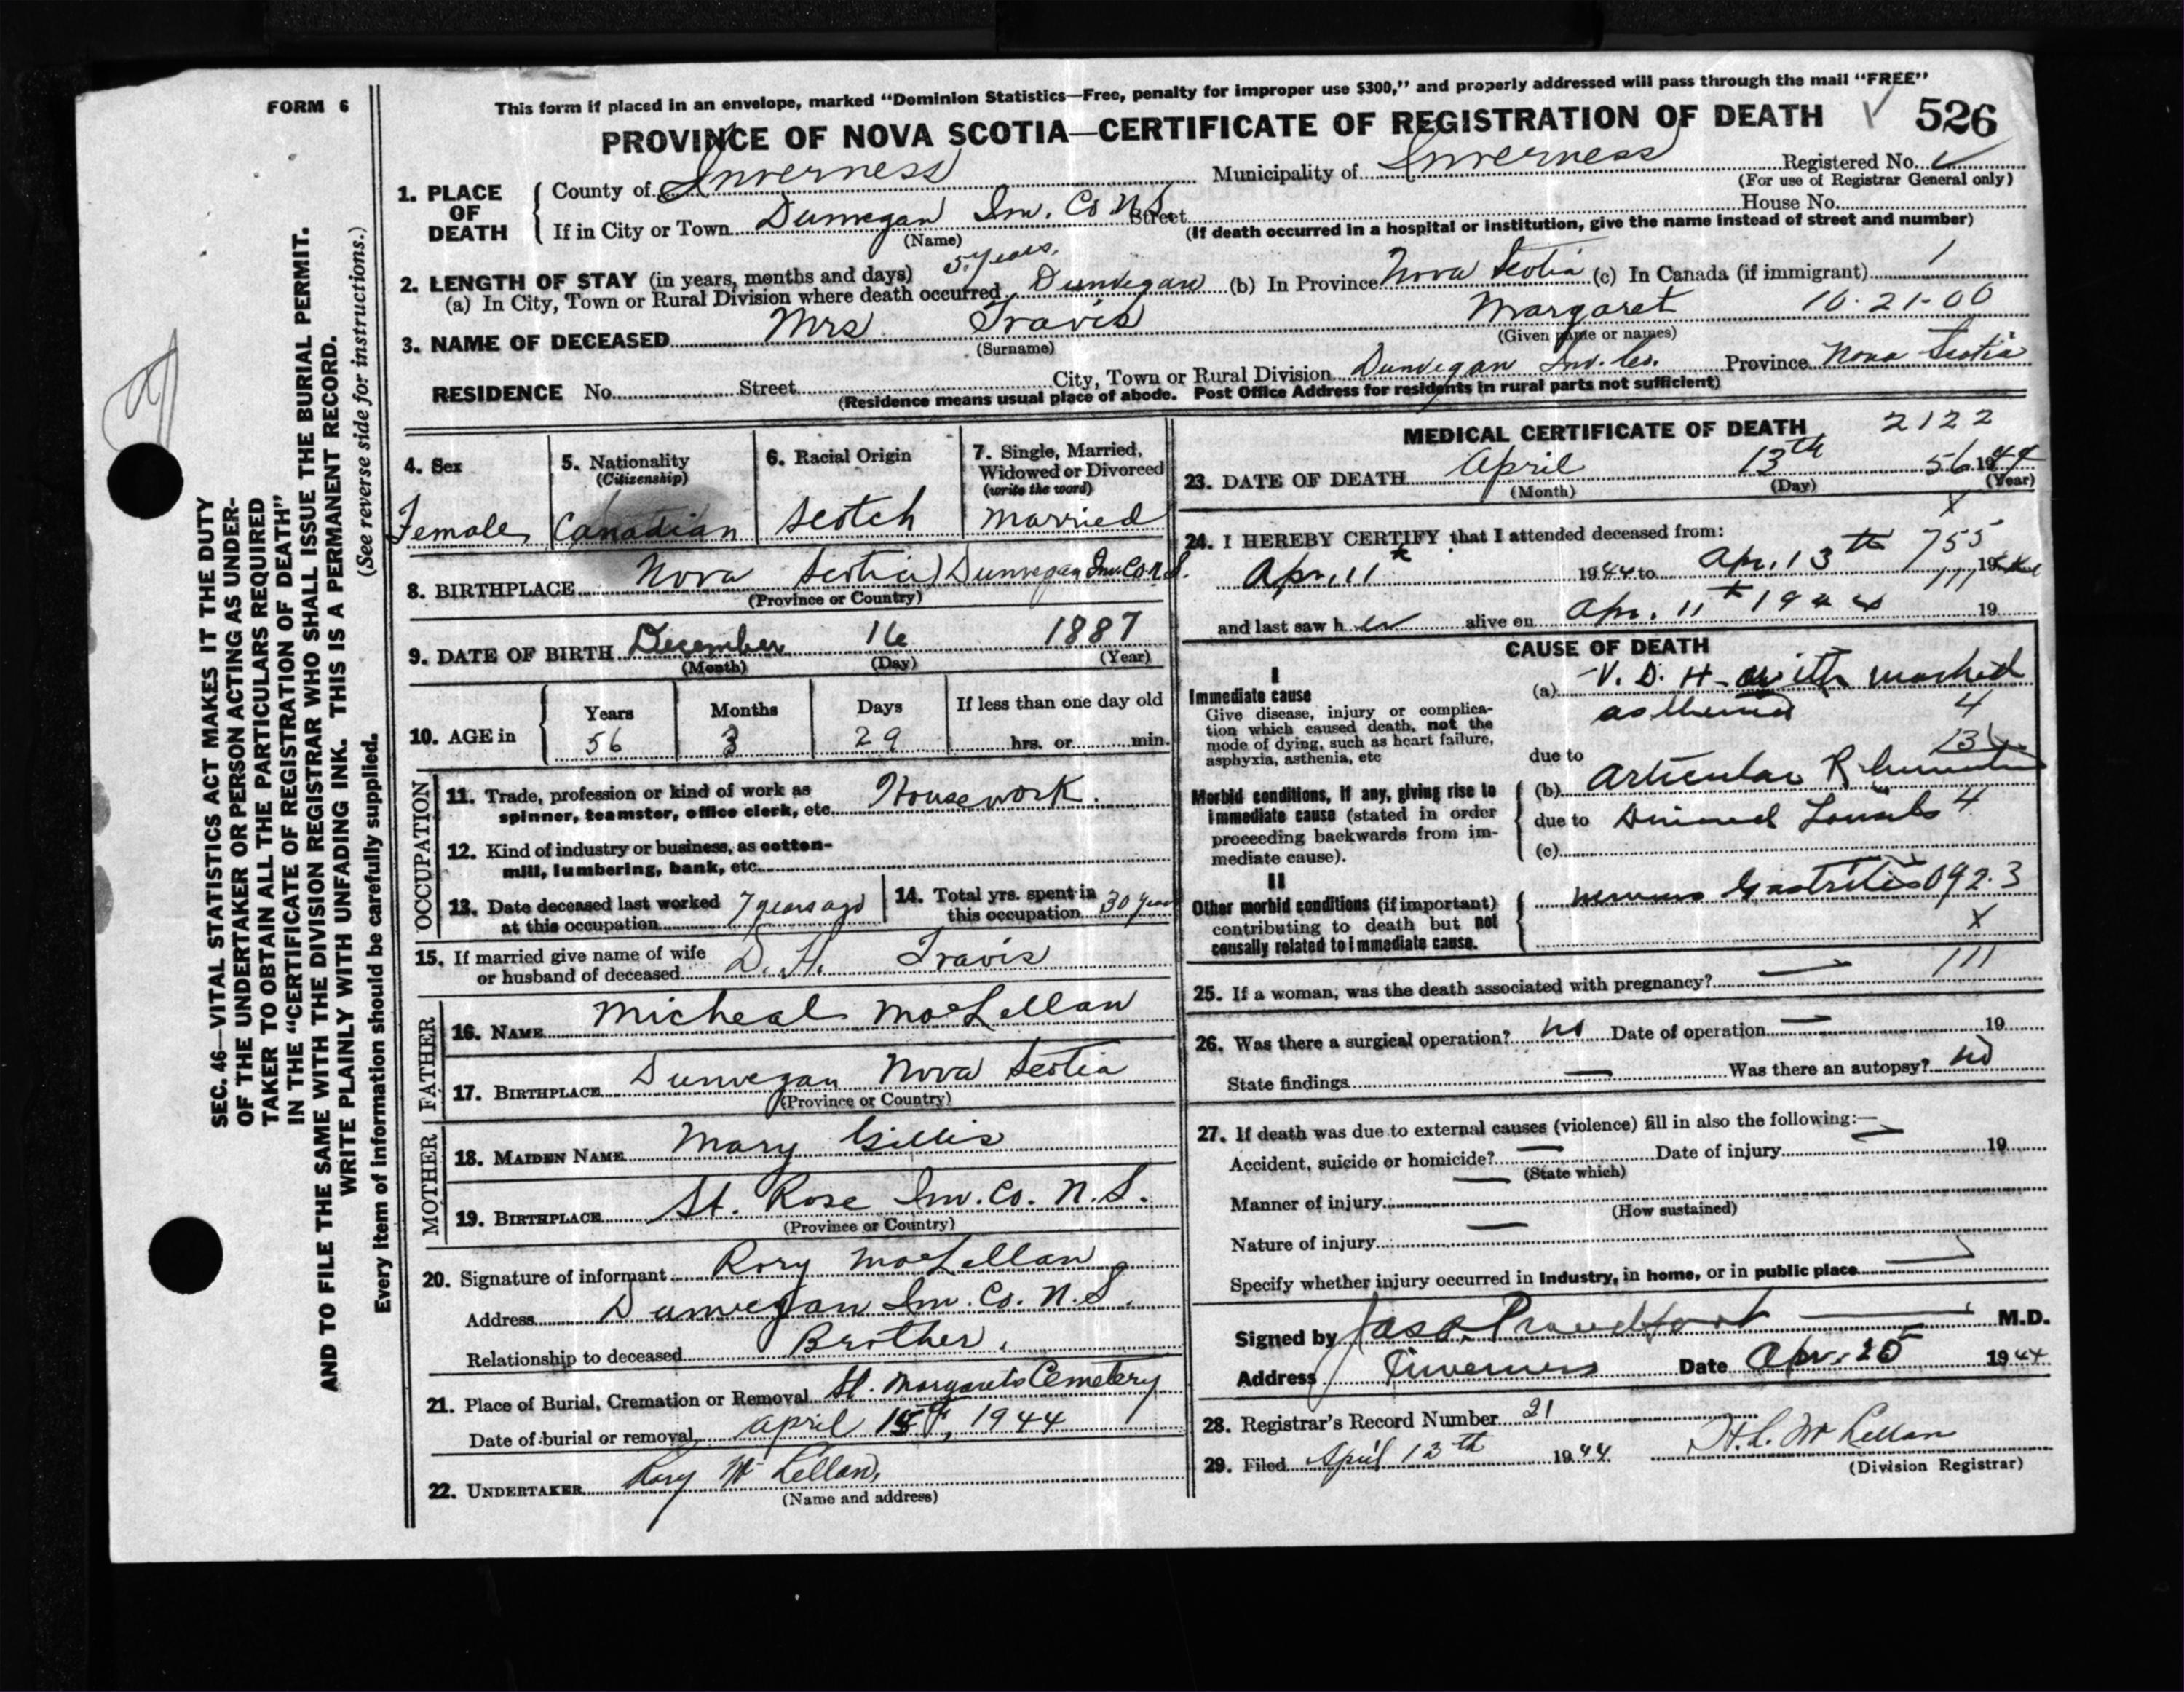 FORM 6
This form if placed in an envelope, marked "Dominion Statistics—Free, penalty for improper use $300," and properly addressed will pass through the mail "FREE"
PROVINCE OF NOVA SCOTIA—CERTIFICATE OF REGISTRATION OF DEATH 526
1. PLACE OF DEATH
County of Inverness Municipality of Inverness Registered No.
(For use of Registrar General only)
If in City or Town Dunvegan Inv. Co N.S. Street House No.
(Name) (If death occurred in a hospital or institution, give the name instead of street and number)
2. LENGTH OF STAY (in years, months and days) 5 years.
(a) In City, Town or Rural Division where death occurred Dunvegan (b) In Province Nova Scotia (c) In Canada (if immigrant) 1
3. NAME OF DECEASED Mrs Travis Margaret 10-21-00
(Surname) (Given name or names)
RESIDENCE No. Street City, Town or Rural Division Dunvegan Inv. Co. Province Nova Scotia
(Residence means usual place of abode. Post Office Address for residents in rural parts not sufficient)
4. Sex
Female
5. Nationality
(Citizenship)
Canadian
6. Racial Origin
Scotch
7. Single, Married, Widowed or Divorced
(write the word)
Married
8. BIRTHPLACE Nova Scotia Dunvegan Inv. Co N.S.
(Province or Country)
9. DATE OF BIRTH December 16 1887
(Month) (Day) (Year)
10. AGE in
Years Months Days If less than one day old
56 3 29 hrs. or min.
OCCUPATION
11. Trade, profession or kind of work as
spinner, teamster, office clerk, etc. Housework.
12. Kind of industry or business, as cotton-
mill, lumbering, bank, etc.
13. Date deceased last worked
at this occupation 7 years ago
14. Total yrs. spent in
this occupation 30 years
15. If married give name of wife
or husband of deceased D. H. Travis
FATHER
16. NAME Micheal McLellan
17. BIRTHPLACE Dunvegan Nova Scotia
(Province or Country)
MOTHER
18. MAIDEN NAME Mary Gillis
19. BIRTHPLACE St. Rose Inv. Co. N.S.
(Province or Country)
20. Signature of informant Rory McLellan
Address Dunvegan Inv. Co. N.S.
Relationship to deceased Brother.
21. Place of Burial, Cremation or Removal St. Margarets Cemetery
Date of burial or removal April 15, 1944
22. UNDERTAKER Rory McLellan,
(Name and address)
MEDICAL CERTIFICATE OF DEATH 2122
23. DATE OF DEATH April 13th 56 1944
(Month) (Day) (Year)
x
24. I HEREBY CERTIFY that I attended deceased from: 755
Apr. 11th 1944 to Apr. 13th 19
111
and last saw her alive on Apr. 11th 1944 19
CAUSE OF DEATH
I
Immediate cause
Give disease, injury or complica-
tion which caused death, not the
mode of dying, such as heart failure,
asphyxia, asthenia, etc
(a) V. D. H. with marked
asthenia 4
due to
(b) Articular Rheumatism
due to Diseased Tonsils 4
(c)
Morbid conditions, if any, giving rise to
immediate cause (stated in order
proceeding backwards from im-
mediate cause).
II
Other morbid conditions (if important)
contributing to death but not
causally related to immediate cause.
Gastritis 092.3
X
25. If a woman, was the death associated with pregnancy? — 111
26. Was there a surgical operation? no Date of operation — 19
State findings — Was there an autopsy? no
27. If death was due to external causes (violence) fill in also the following:—
Accident, suicide or homicide? — Date of injury — 19
(State which)
Manner of injury —
(How sustained)
Nature of injury —
Specify whether injury occurred in industry, in home, or in public place —
Signed by Jas. A. Proudfoot M.D.
Address Inverness Date Apr. 25 1944
28. Registrar's Record Number 21
29. Filed April 13th 1944 H.L. McLellan
(Division Registrar)
SEC. 46—VITAL STATISTICS ACT MAKES IT THE DUTY
OF THE UNDERTAKER OR PERSON ACTING AS UNDER-
TAKER TO OBTAIN ALL THE PARTICULARS REQUIRED
IN THE "CERTIFICATE OF REGISTRATION OF DEATH"
AND TO FILE THE SAME WITH THE DIVISION REGISTRAR WHO SHALL ISSUE THE BURIAL PERMIT.
WRITE PLAINLY WITH UNFADING INK. THIS IS A PERMANENT RECORD.
(See reverse side for instructions.)
Every item of information should be carefully supplied.